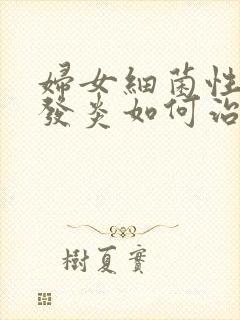 婦女細菌性
發炎如何治
樹夏實